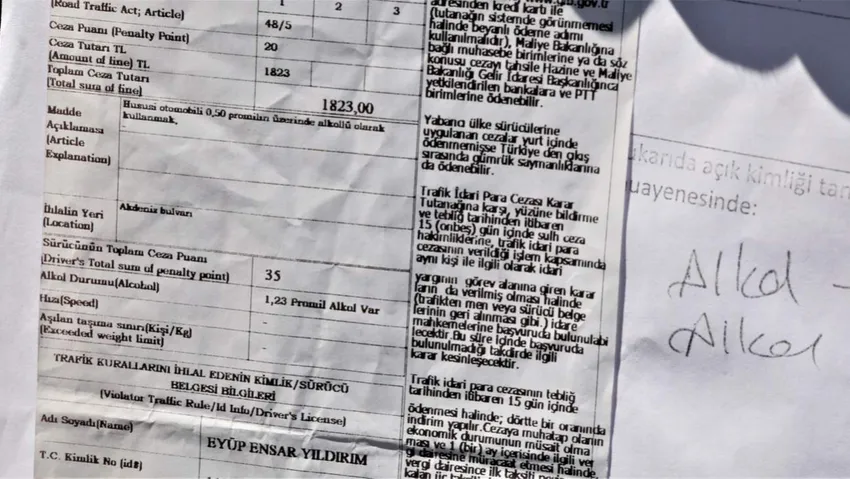 (Road Traffic Act; Article)
1 2 3
48/5
Ceza Puanı (Penalty Point)
20
Ceza Tutarı TL
(Amount of fine) TL
1823
Toplam Ceza Tutarı
(Total sum of fine)
1823,00
Madde
Açıklaması
(Article
Explanation)
Hususi otomobili 0,50 promilin üzerinde alkollü olarak
kullanmak,
İhlalin Yeri
(Location)
Akdeniz bulvarı
Sürücünün Toplam Ceza Puanı
(Driver's Total sum of penalty point)
35
Alkol Durumu(Alcohol)
1,23 Promil Alkol Var
Hızı(Speed)
-
Aşılan taşıma sınırı(Kişi/Kg)
(Exceeded weight limit)
-
TRAFİK KURALLARINI İHLAL EDENİN KİMLİK/SÜRÜCÜ
BELGESİ BİLGİLERİ
(Violator Traffic Rule/Id Info/Driver's License)
Adı Soyadı(Name)
EYÜP ENSAR YILDIRIM
T.C. Kimlik No (id#)
.gov.tr
adresinden kredi kartı ile
(tutanağın sistemde görünmemesi
halinde beyanlı ödeme adımı
kullanılmalıdır), Maliye Bakanlığına
bağlı muhasebe birimlerine ya da söz
konusu cezayı tahsile Hazine ve Maliye
Bakanlığı Gelir İdaresi Başkanlığınca
yetkilendirilen bankalara ve PTT
birimlerine ödenebilir.
Yabancı ülke sürücülerine
uygulanan cezalar yurt içinde
ödenmemişse Türkiye den çıkış
sırasında gümrük saymanlıklarına
da ödenebilir.
Trafik İdari Para Cezası Karar
Tutanağına karşı, yüzüne bildirme
ve tebliğ tarihinden itibaren
15 (onbeş) gün içinde sulh ceza
hakimliklerine, trafik idari para
cezasının verildiği işlem kapsamında
aynı kişi ile ilgili olarak idari
yargının görev alanına giren karar
ların da verilmiş olması halinde
(trafikten men veya sürücü belge
lerinin geri alınması gibi.) idare
mahkemelerine başvuruda bulunulabi
lecektir.Bu süre içinde başvuruda
bulunulmadığı takdirde ilgili
karar kesinleşecektir.
Trafik idari para cezasının tebliğ
tarihinden itibaren 15 gün içinde
ödenmesi halinde; dörtte bir oranında
indirim yapılır.Cezaya muhatap olanın
ekonomik durumunun müsait olma
ması ve 1 (bir) ay içerisinde ilgili ver
gi dairesine müracaat etmesi halinde,
vergi dairesince ilk taksiti peşin
ukarıda açık kimliği tan
uayenesinde:
Alkol -
Alkol